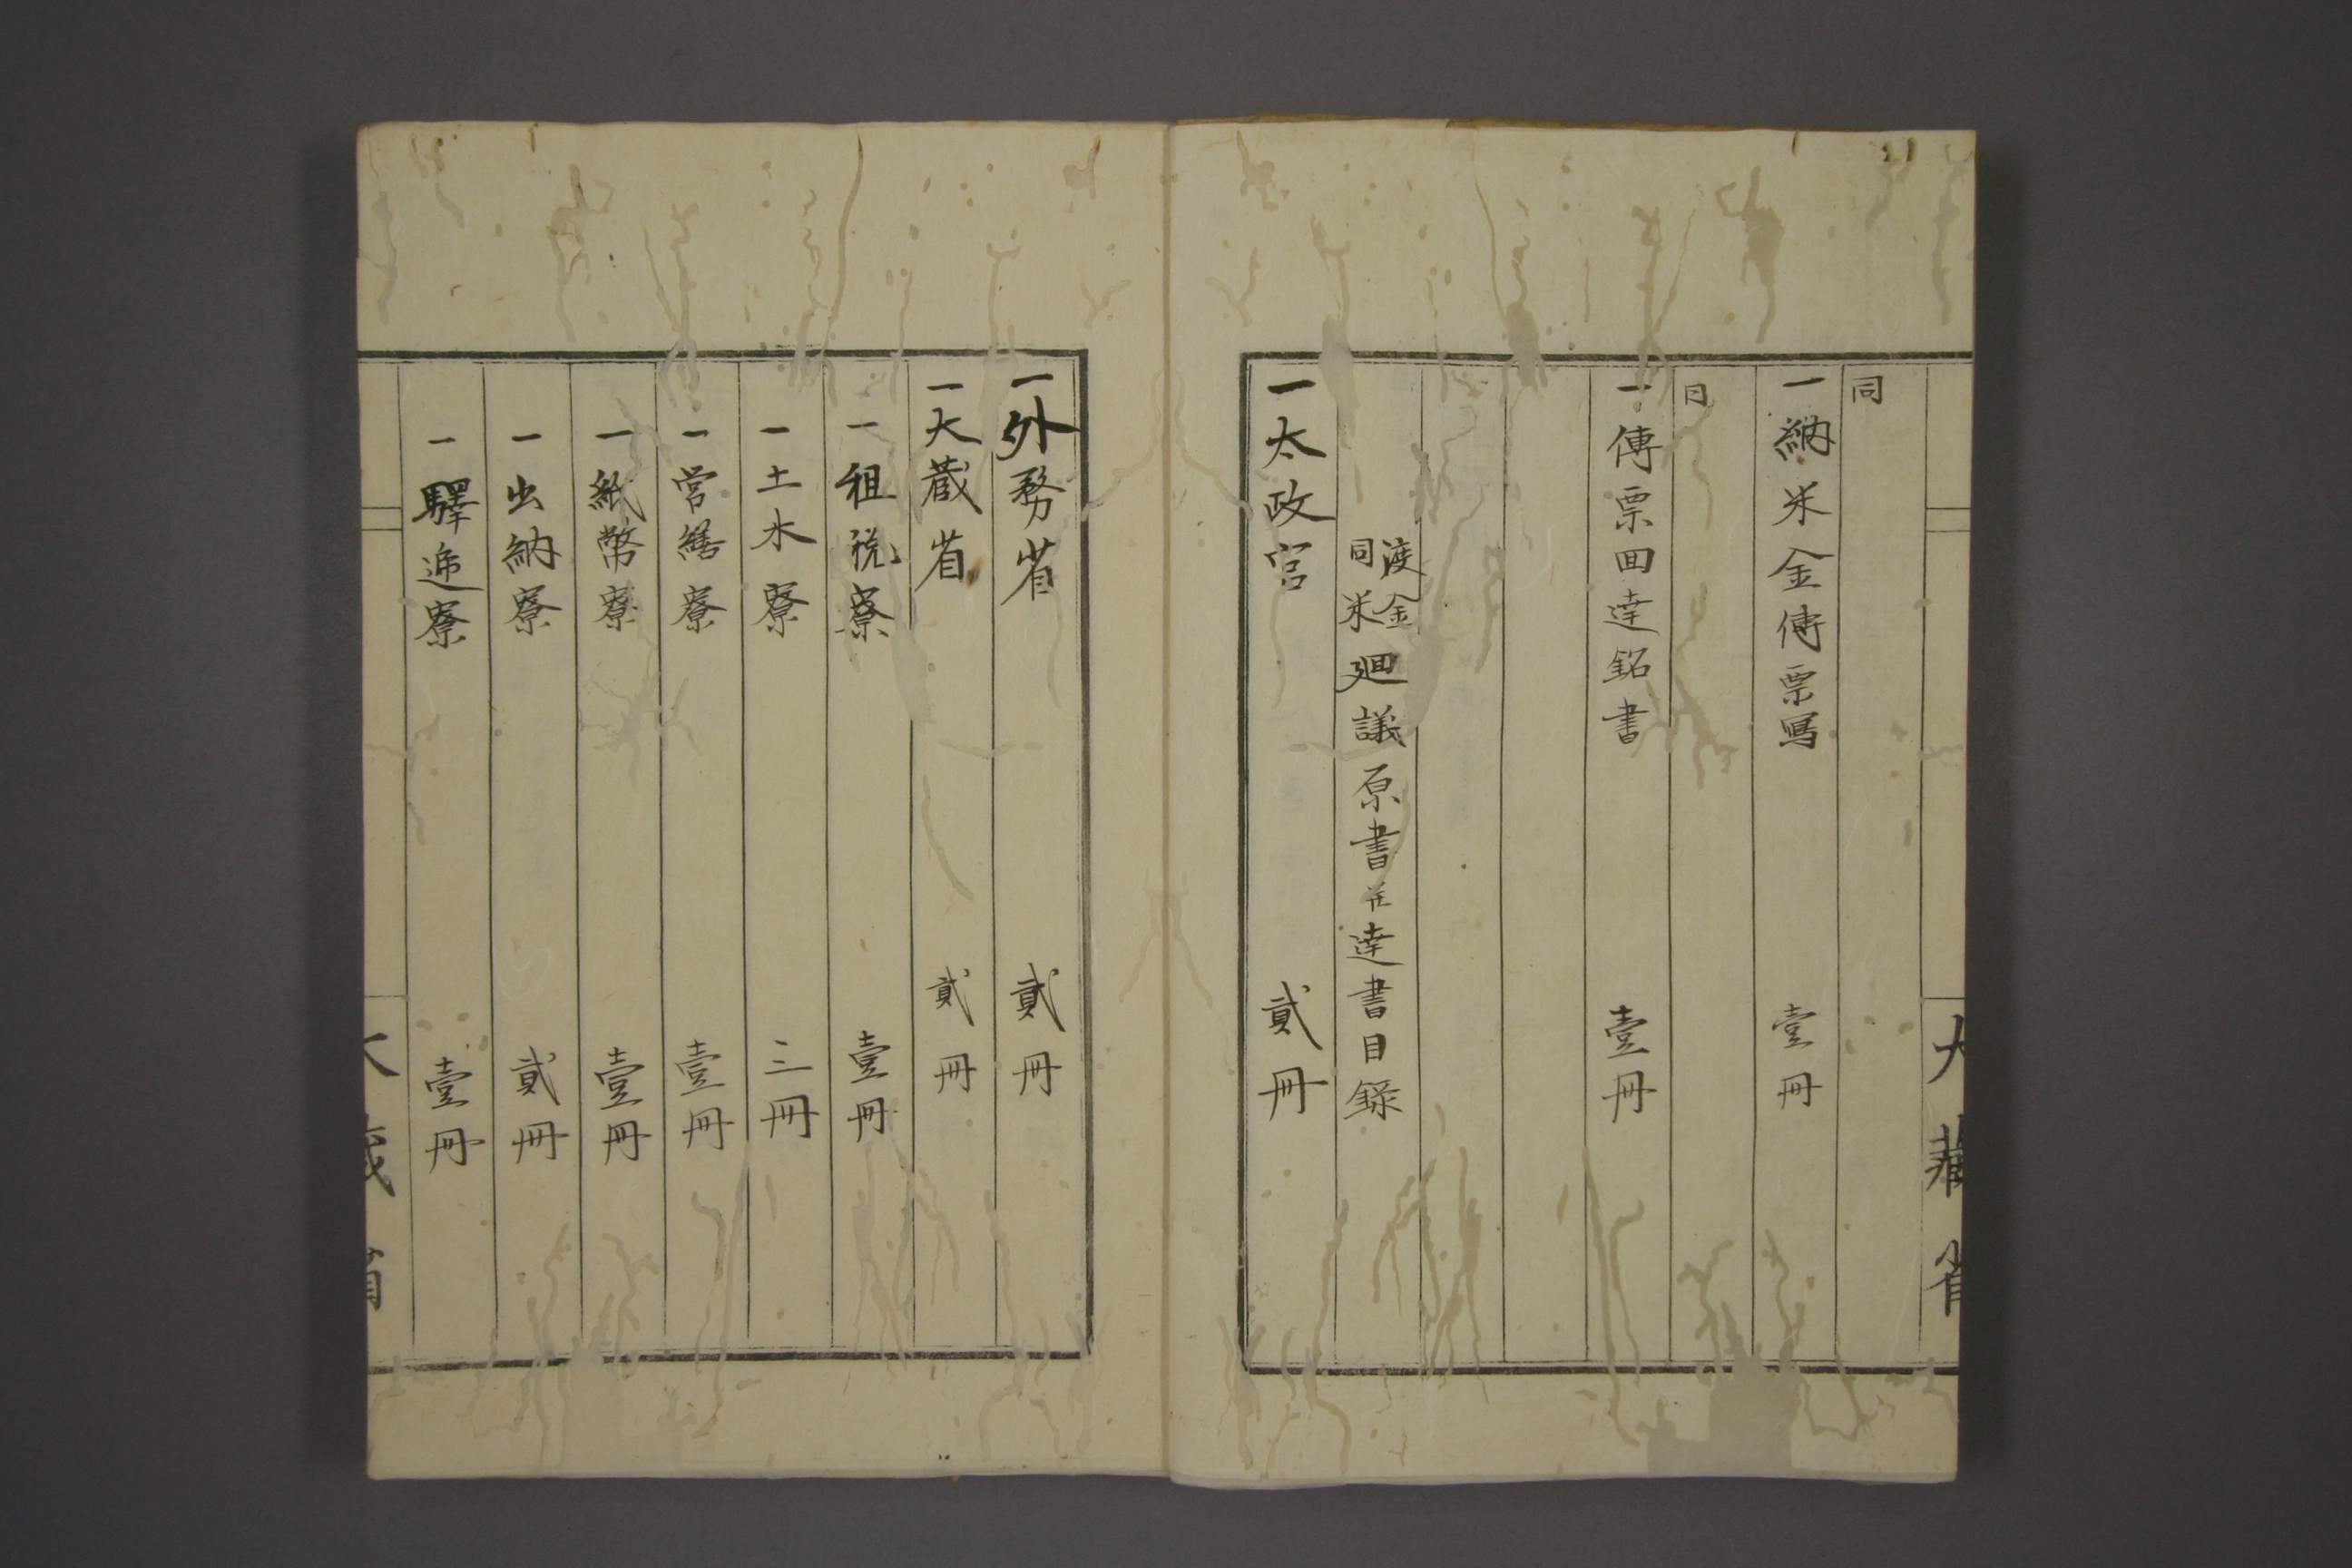 大藏省
同
一納米金傳票写
壹冊
同
一傳票回達銘書
壹冊
渡金
同米
廻議原書並達書目録
一太政官
貳冊
一外務省
貳冊
一大蔵省
貳冊
一租税寮
壹冊
一土木寮
三冊
一営繕寮
壹冊
一紙幣寮
壹冊
一出納寮
貳冊
一驛逓寮
壹冊
大藏省